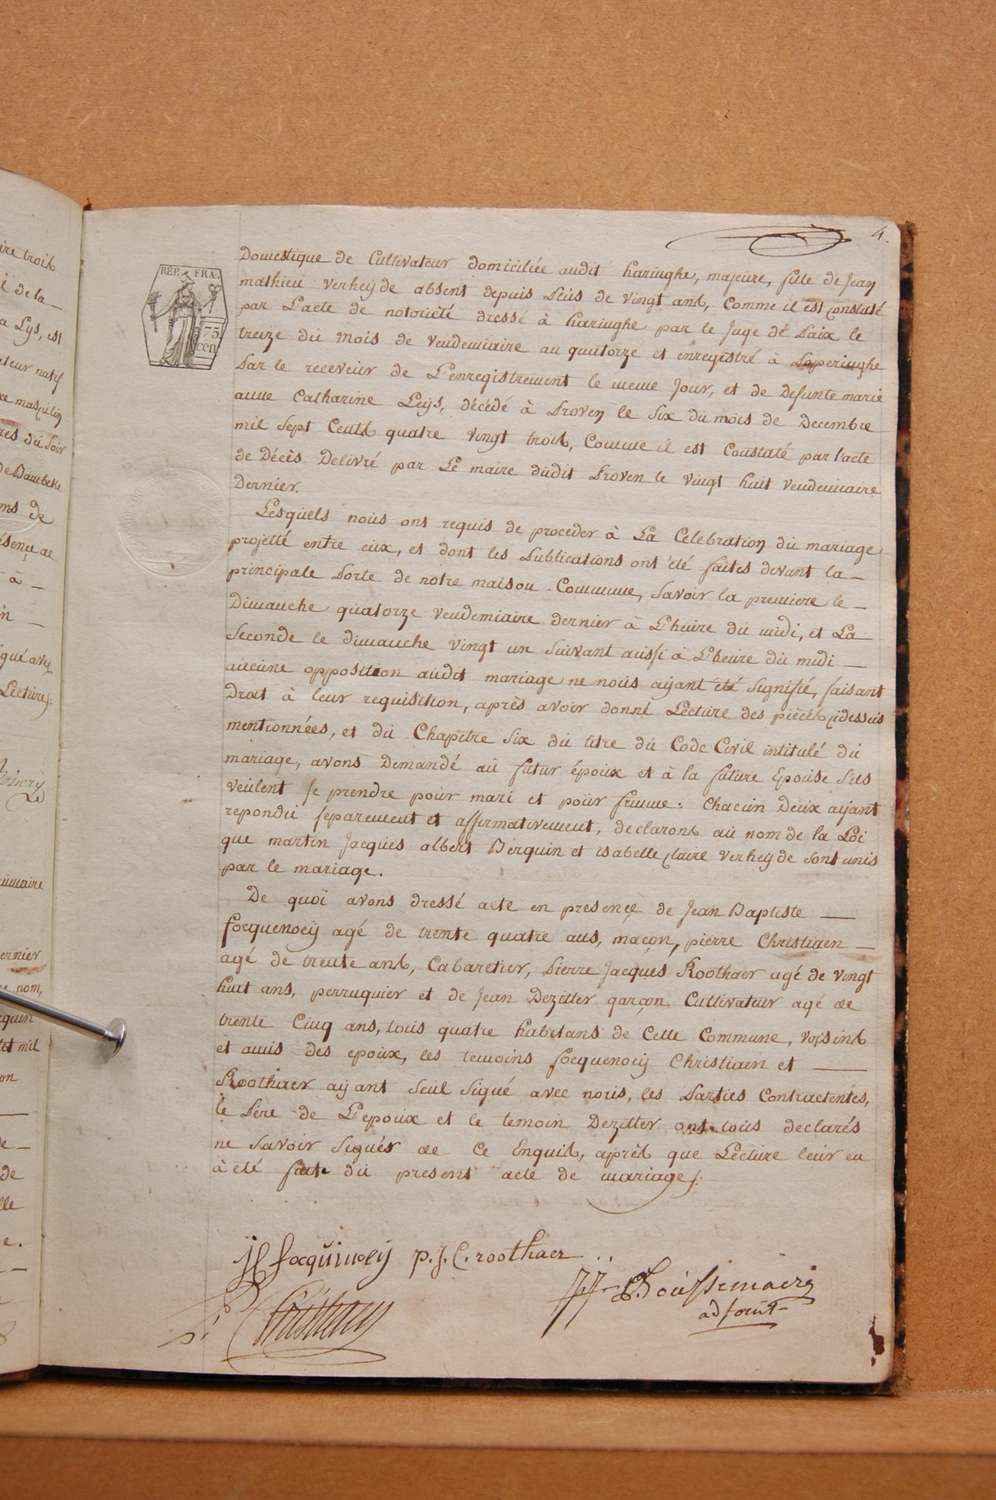 4.
REP. FRA.
75
cen
Domestique de Cultivateur domiciliée audit haringhe, majeure, fille de Jean
mathieu verheyde absent depuis Plus de vingt ans, Comme il est constaté
par L'acte de notorieté dressé à haringhe par le Juge de Paix le
treize du mois de vendemiaire an quatorze et enregistré à Poperinghe
Par le receveur de L'enregistrement le meme Jour, et de Defunte marie
anne Catharine Leys, décédé à Proven le Six du mois de Decembre
mil Sept Cents quatre vingt trois, Comme il est Constaté par l'acte
de Décès Delivré par Le maire dudit Proven le vingt huit vendemiaire
Dernier.
Lesquels nous ons requis de proceder à La Célébration du mariage
projetté entre eux, et dont les Publications ont été faites devant la
principale Porte de notre maison Commune, Savoir la premiere le
Dimanche quatorze vendemiaire dernier à L'heure du midi, et La
Seconde le dimanche vingt un Suivant aussi à L'heure du midi
aucune opposition audit mariage ne nous ayant été Signifié, faisant
Droit à leur requisition, après avoir donné Lecture des pièces cidessus
mentionnées, et du Chapitre Six du titre du Code Civil intitulé du
mariage, avons Demandé au futur époux et à la future Epouse S'ils
veulent Se prendre pour mari et pour femme. Chacun Deux ayant
repondu separement et affirmativement, declarons au nom de la Loi
que martin Jacques albert Berquin et isabelle claire verheyde Sont unis
par le mariage.
De quoi avons dressé acte en presence de Jean Baptiste
focquenoey agé de trente quatre ans, maçon, pierre Christiaen
agé de trente ans, Cabaretier, Pierre Jacques Roothaer agé de vingt
huit ans, perruquier et de Jean Dezitter garçon Cultivateur agé de
trente Cinq ans, tous quatre habitans de Cette Commune, voisins
et amis des epoux, les temoins focquenoey Christiaen et
Roothaer ayant Seul Signé avec nous, les Parties Contractentes,
le Père de L'epoux et le temoin Dezitter ont tous declarés
ne Savoir Signés de Ce Enquis, après que Lecture leur en
à été faite du present acte de mariage.
focquenoey p. J. C. roothaer
Christiaen
Boussemaere
adjoint